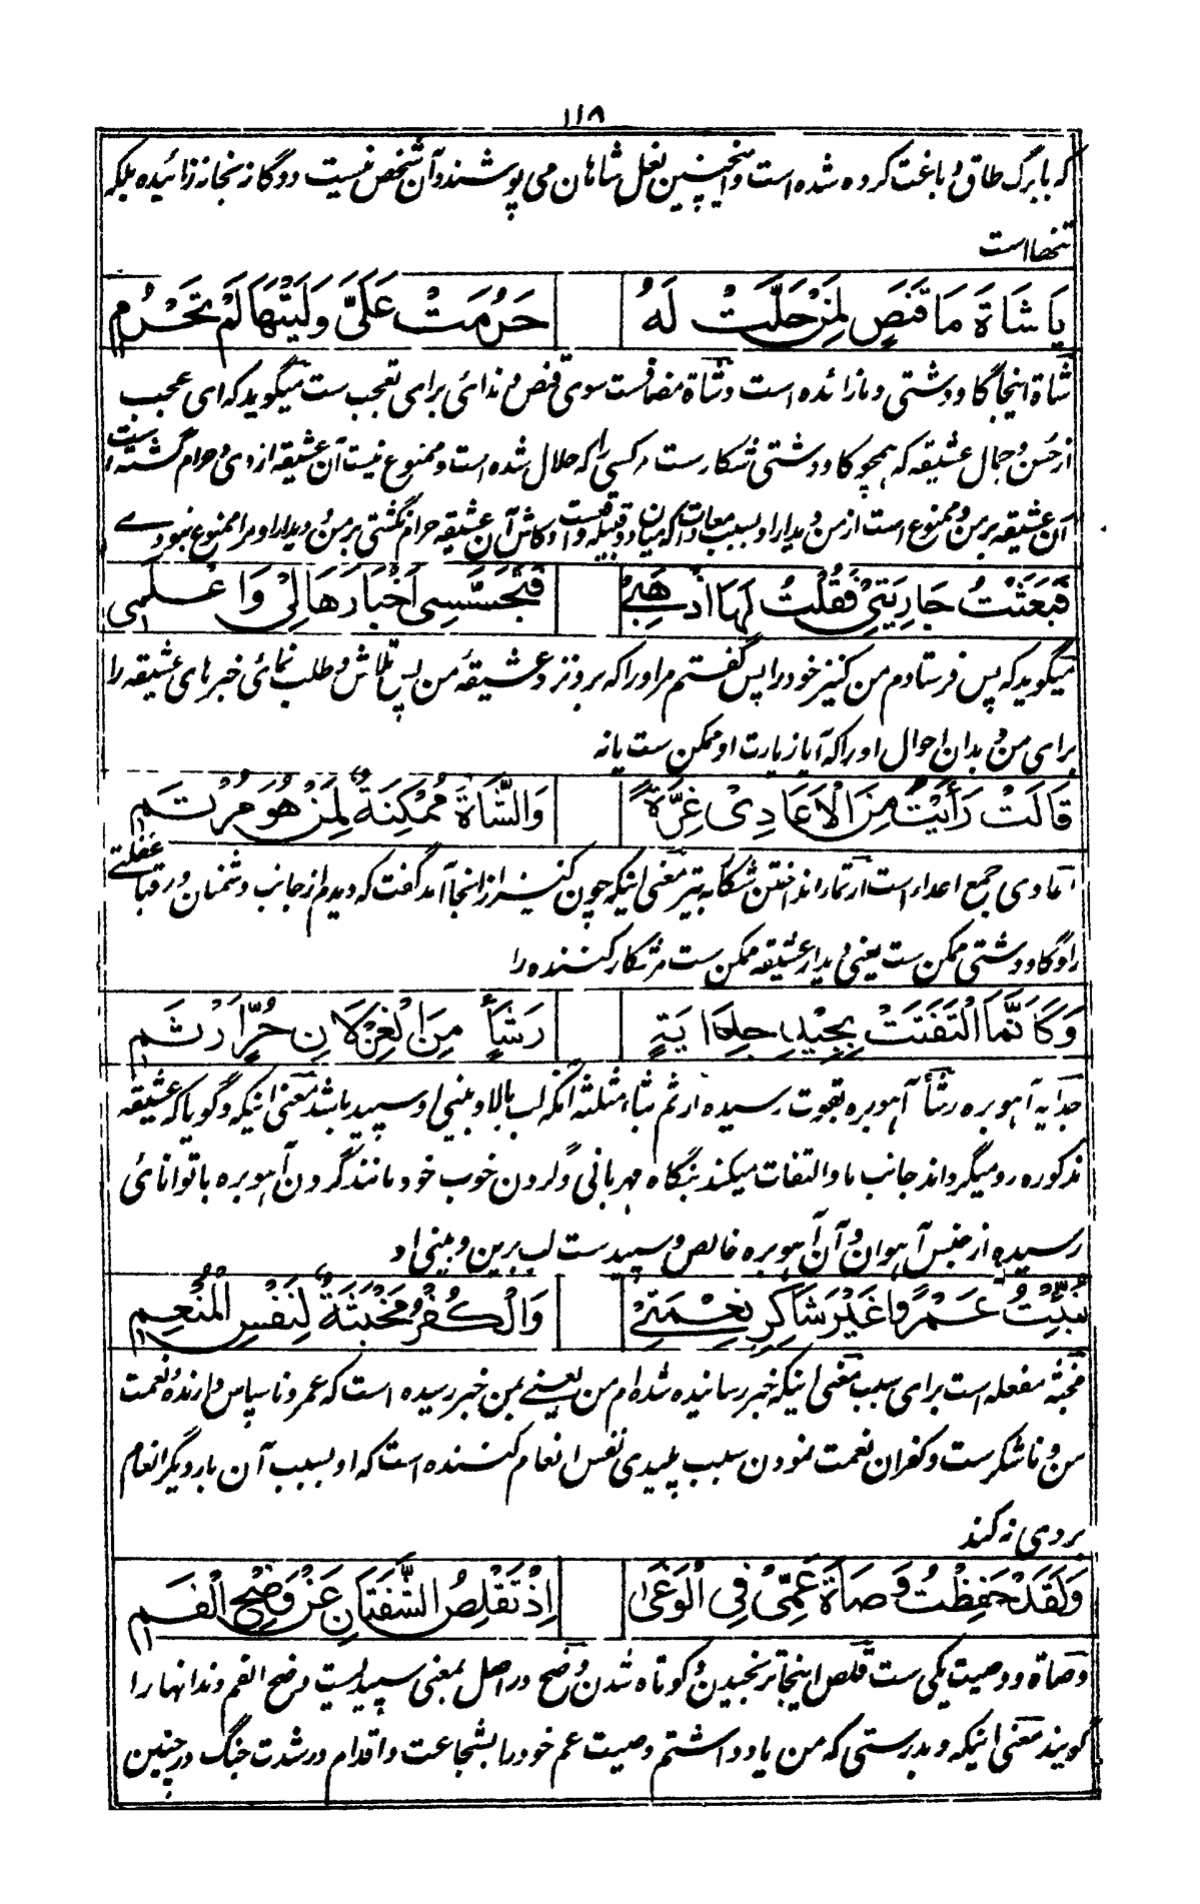 ١١٨
که ببرگ طاق دباغت کرده شده است و اینچنین نعل شاهان می پوشند و آن شخص نیست دوگانه بخانه زائیده بلکه
تنها است
يَا شَاةَ مَا قَنَصٍ لِمَنْ حَلَّتْ لَهُ حَرُمَتْ عَلَيَّ وَلَيْتَهَا لَمْ تَحْرُمِ
شاة اینجا گاو دشتی و ما زائده است و شاة مضافست سوی قنص و ندائی برای تعجب ست میگوید که ای عجب
از حسن و جمال عشیقه که همچو گاو دشتی شکارست مر کسی را که حلال شده است و ممنوع نیست آن عشیقه از وی و حرام گشته است
آن عشیقه بر من و ممنوع است از من دیدار او بسبب معادات که میان دو قبیله واقعست و کاش آن عشیقه حرام نگشتی بر من و دیدار او مرا ممنوع نبودے
فَبَعَثْتُ جَارِيَتِيْ فَقُلْتُ لَهَا اذْهَبِيْ فَتَجَسَّسِي أَخْبَارَهَا لِيْ وَاعْلَمِي
میگوید که پس فرستادم من کنیز خود را پس گفتم مر او را که برو نزد عشیقهٔ من پس تلاش و طلب نمائی خبرهای عشیقه را
برای من و بدان احوال او را که آیا زیارت او ممکن ست یا نه
قَالَتْ رَأَيْتُ مِنَ الْاَعَادِيْ غِرَّةً وَالشَّاةُ مُمْكِنَةٌ لِمَنْ هُوَ مُرْتَمِ
اعادی جمع اعداء است ارتماء انداختن شکار به تیر معنی اینکه چون کنیز از انجا آمد گفت که دیدم از جانب دشمنان و رقبا غفلتے
را و گاو دشتی ممکن ست یعنی دیدار عشیقه ممکن ست مر شکار کننده را
وَكَاَنَّمَا الْتَفَتَتْ بِجِيْدِ جِدَايَةٍ رَشَأٍ مِنَ الْغِزْلَانِ حُرٍّ اَرْثَمِ
جدایه آهو بره رشأ آهو بره بقوت رسیده ارثم بثاء مثلثه آنکه لب بالا و بینی او سپید باشد معنی اینکه و گویا که عشیقه
مذکوره رو میگرداند جانب ما و التفات میکند بنگاه مهربانی و گردن خوب خود مانند گردن آهو بره با توانائی
رسیده از جنس آهوان و آن آهو بره خالص و سپید ست لب برین و بینی او
نُبِّئْتُ عَمْرًوا غَيْرَ شَاكِرِ نِعْمَتِيْ وَالْكُفْرُ مَخْبَثَةٌ لِنَفْسِ الْمُنْعِمِ
مخبثة مفعله است برای سبب معنی اینکه خبر رسانیده شده ام من یعنے بمن خبر رسیده است که عمرو ناسپاس دارندهٔ نعمت
من و ناشکرست و کفران نعمت نمودن سبب پلیدی نفس انعام کننده است که او بسبب آن بار دیگر انعام
بر وی نه کند
وَلَقَدْ حَفِظْتُ وَصَاةَ عَمِّيْ فِي الْوَغٰى اِذْ تَقْلِصُ الشَّفَتَانِ عَنْ وَضَحِ الْفَمِ
وصاة و وصیت یکی ست قلص اینجا ترنجیدن و کوتاه شدن وضح در اصل بمعنی سپیدیست وضح الفم دندانها را
گویند معنی اینکه و بدرستی که من یاد داشتم وصیت عم خود را بشجاعت و اقدام در شدت جنگ در چنین